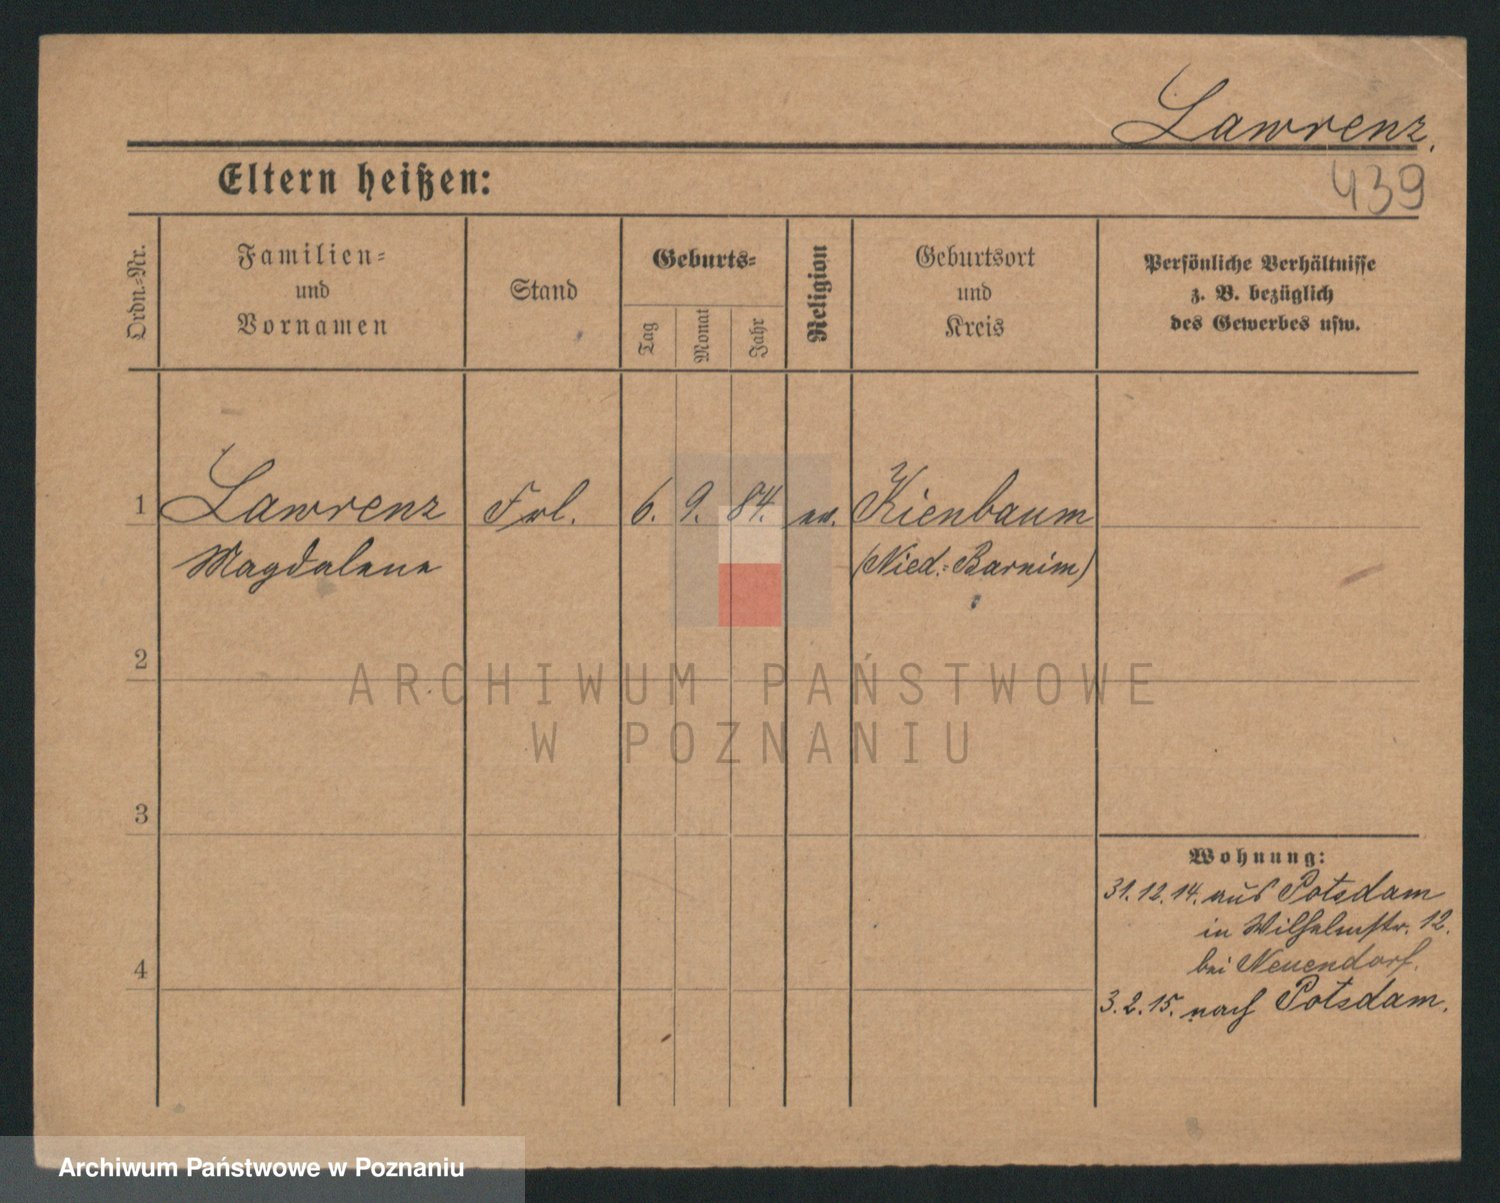 Lawrenz.
439
Eltern heißen:
Ordn.-Nr.
Familien-
und
Vornamen
Stand
Geburts-
Tag
Monat
Jahr
Religion
Geburtsort
und
Kreis
Persönliche Verhältnisse
z. B. bezüglich
des Gewerbes usw.
1 Lawrenz Frl. 6. 9. 84. ev. Kienbaum
Magdalene (Nied.-Barnim)
2
ARCHIWUM PAŃSTWOWE
W POZNANIU
3
Wohnung:
31.12.14. aus Potsdam
in Wilhelmstr. 12.
bei Neuendorf.
4
3.2.15. nach Potsdam.
Archiwum Państwowe w Poznaniu